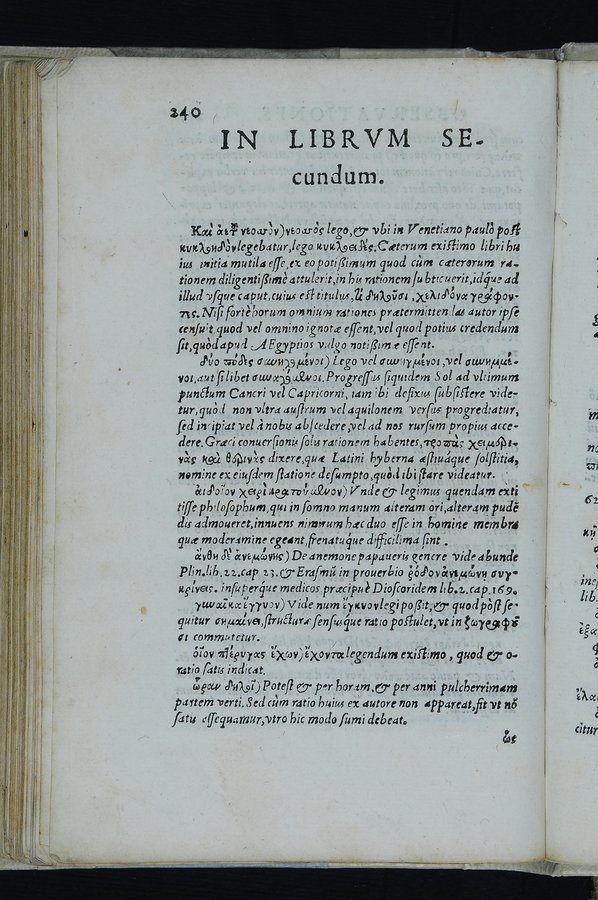 240
IN LIBRVM SE-
cundum.
Καὶ ἀετ νεοσσὸν) νεοσσὸς lego, & vbi in Venetiano paulò post
κυκλοηδὸν legebatur, lego κυκλοειδὲς. Cæterum existimo libri hu
ius initia mutila esse, ex eo potißimum quod cùm cæterorum ra-
tionem diligentißimè attulerit, in his rationem subticuerit, idque ad
illud vsque caput, cuius est titulus, δηλοῦσι, χελιδόνα γράφον-
τες. Nisi fortè horum omnium rationes prætermittendas autor ipse
censuit, quod vel omnino ignotæ essent, vel quod potius credendum
sit, quòd apud Ægyptios vulgo notißimæ essent.
δύο πόδες συνηγμένοι) Lego vel συνιγμένοι, vel συνημμέ-
νοι, aut si libet. Progressus siquidem Sol ad vltimum
punctum Cancri vel Capricorni, iam ibi defixus subsistere vide-
tur, quòd non vltra austrum vel aquilonem versus progrediatur,
sed incipiat vel à nobis abscedere, vel ad nos rursum propius acce-
dere. Græci conuersionis solis rationem habentes, τροπὰς χειμερι-
νὰς καὶ θερινὰς dixere, quæ Latini hyberna æstiuáque solstitia,
nomine ex eiusdem statione desumpto, quòd ibi stare videatur.
αἰδοῖον χειρὶ κρατούμενον) Vnde & legimus quendam exti
tisse philosophum, qui in somno manum alteram ori, alteram pudē
dis admoueret, innuens nimirum hæc duo esse in homine membra
quæ moderamine egeant, frenatúque difficilima sint.
ἄνθη δὲ ἀνεμώνης) De anemone papaueris genere vide abunde
Plin. lib. 22. cap 23. & Erasmū in prouerbio ῥόδον ἀνεμώνῃ συγ-
κρίνεις. insuperque medicos præcipuè Dioscoridem lib. 2. cap. 169.
γυναῖκα ἔγγυον) Vide num ἔγκυον legi poßit, & quod pòst se-
quitur σημαίνει, structuræ sensusque ratio postulet, vt in ζωγραφῦ
σι commutetur.
οἷον πτέρυγας ἔχων) ἔχοντα legendum existimo, quod & o-
ratio satis indicat.
ὥραν δηλοῖ) Potest & per horam, & per anni pulcherrimam
partem verti. Sed cùm ratio huius ex autore non appareat, fit vt nō
satis assequamur, vtro hic modo sumi debeat.
ὡς